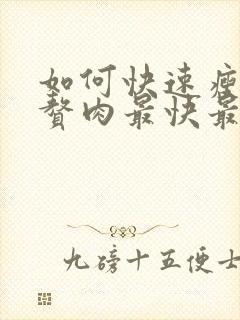 如何快速瘦
赘肉最快最
九磅十五便士